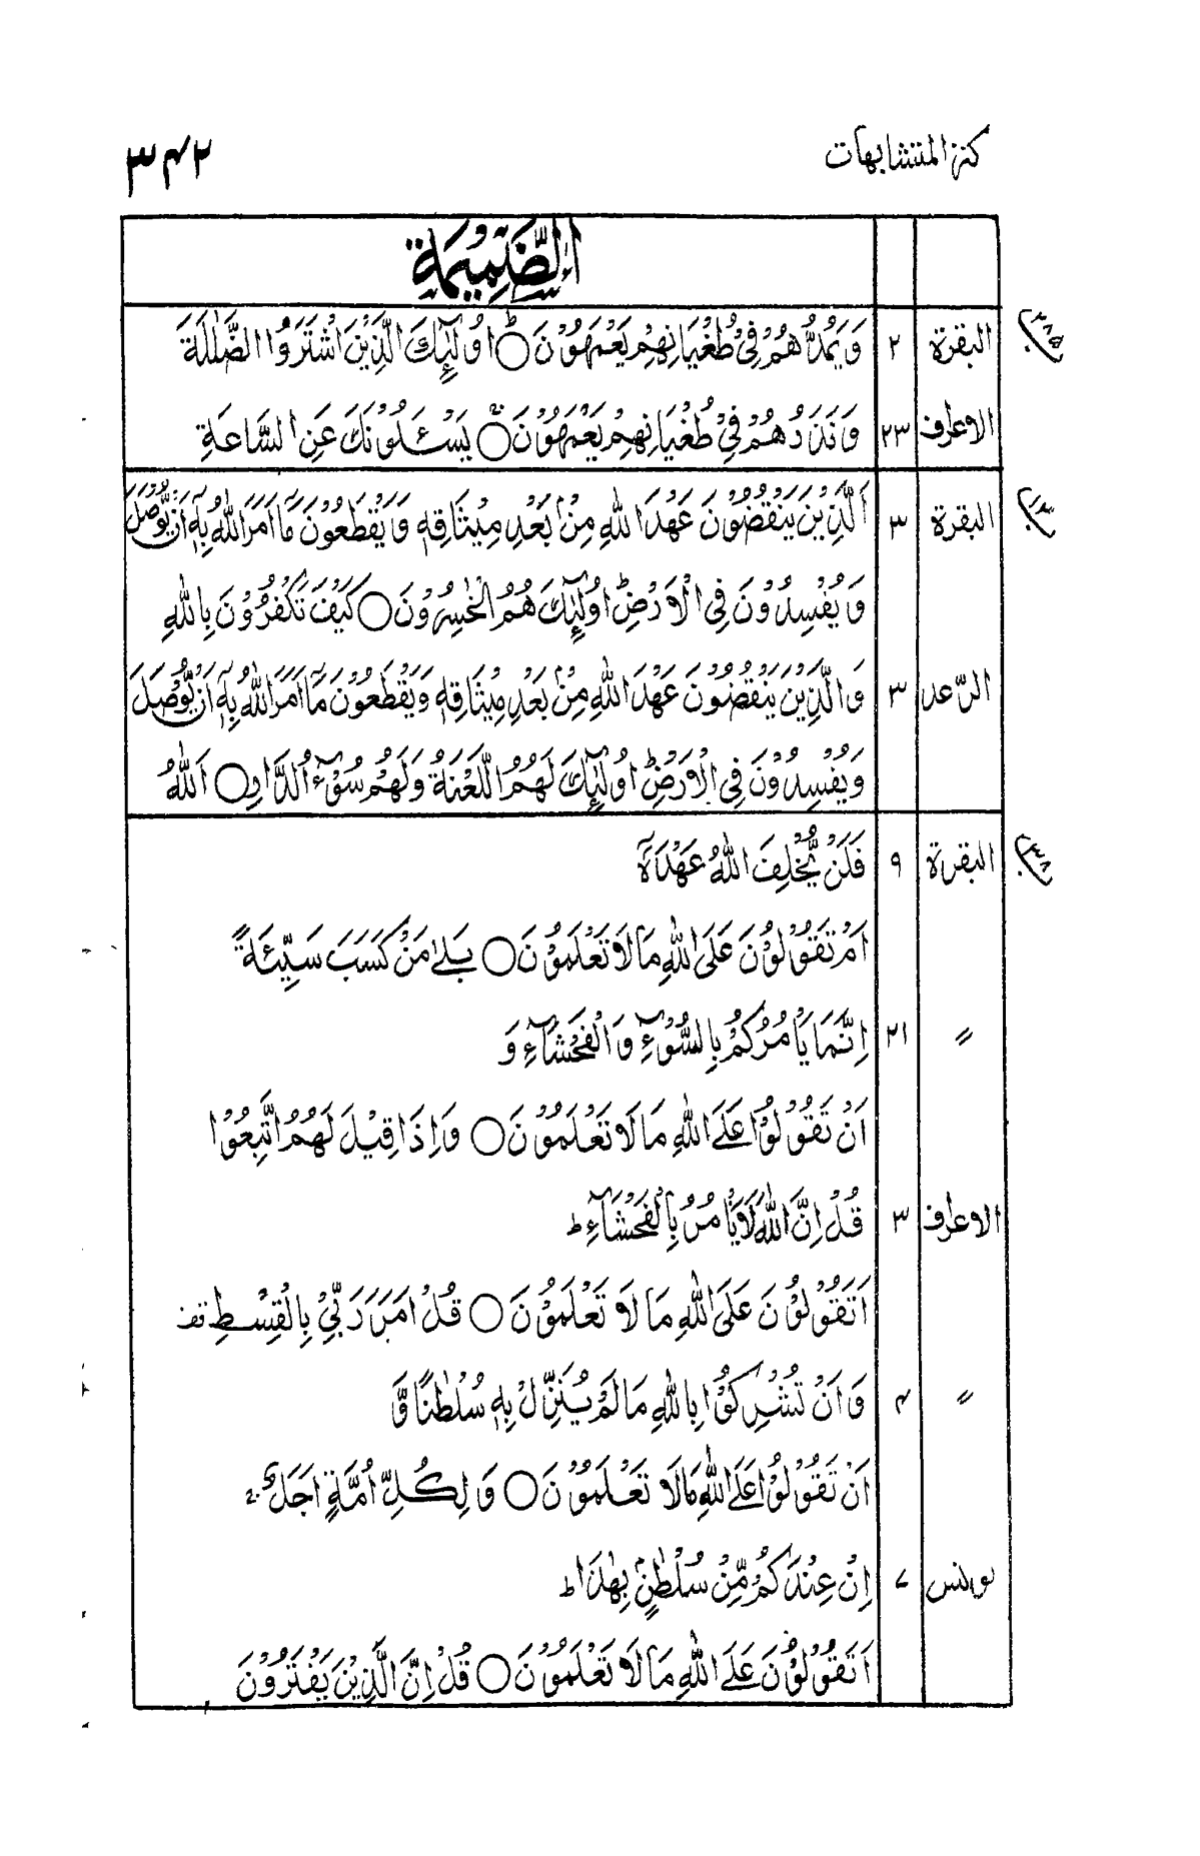 كنز المتشابهات
٣٤٢
اَلضَّمِيْمَة
البقرة ٢ وَيَمُدُّهُمْ فِيْ طُغْيَانِهِمْ يَعْمَهُوْنَ ○ اُولٰٓئِكَ الَّذِيْنَ اشْتَرَوُا الضَّلٰلَةَ
الاعراف ٢٣ وَنَذَرُهُمْ فِيْ طُغْيَانِهِمْ يَعْمَهُوْنَ ○ يَسْـَٔلُوْنَكَ عَنِ السَّاعَةِ
البقرة ٣ اَلَّذِيْنَ يَنْقُضُوْنَ عَهْدَ اللّٰهِ مِنْۢ بَعْدِ مِيْثَاقِهٖ وَيَقْطَعُوْنَ مَآ اَمَرَ اللّٰهُ بِهٖٓ اَنْ يُّوْصَلَ
وَيُفْسِدُوْنَ فِي الْاَرْضِ ؕ اُولٰٓئِكَ هُمُ الْخٰسِرُوْنَ ○ كَيْفَ تَكْفُرُوْنَ بِاللّٰهِ
الرّعد ٣ وَالَّذِيْنَ يَنْقُضُوْنَ عَهْدَ اللّٰهِ مِنْۢ بَعْدِ مِيْثَاقِهٖ وَيَقْطَعُوْنَ مَآ اَمَرَ اللّٰهُ بِهٖٓ اَنْ يُّوْصَلَ
وَيُفْسِدُوْنَ فِي الْاَرْضِ ؕ اُولٰٓئِكَ لَهُمُ اللَّعْنَةُ وَلَهُمْ سُوْٓءُ الدَّارِ ○ اَللّٰهُ
البقرة ٩ فَلَنْ يُّخْلِفَ اللّٰهُ عَهْدَهٗٓ
اَمْ تَقُوْلُوْنَ عَلَى اللّٰهِ مَا لَا تَعْلَمُوْنَ ○ بَلٰى مَنْ كَسَبَ سَيِّئَةً
〃 ٢١ اِنَّمَا يَاْمُرُكُمْ بِالسُّوْٓءِ وَالْفَحْشَآءِ وَ
اَنْ تَقُوْلُوْا عَلَى اللّٰهِ مَا لَا تَعْلَمُوْنَ ○ وَاِذَا قِيْلَ لَهُمُ اتَّبِعُوْا
الاعراف ٣ قُلْ اِنَّ اللّٰهَ لَا يَاْمُرُ بِالْفَحْشَآءِ ؕ
اَتَقُوْلُوْنَ عَلَى اللّٰهِ مَا لَا تَعْلَمُوْنَ ○ قُلْ اَمَرَ رَبِّيْ بِالْقِسْطِ قف
〃 ٤ وَاَنْ تُشْرِكُوْا بِاللّٰهِ مَا لَمْ يُنَزِّلْ بِهٖ سُلْطٰنًا وَّ
اَنْ تَقُوْلُوْا عَلَى اللّٰهِ مَا لَا تَعْلَمُوْنَ ○ وَلِكُلِّ اُمَّةٍ اَجَلٌ ۚ
يونس ٧ اِنْ عِنْدَكُمْ مِّنْ سُلْطٰنٍۢ بِهٰذَا ؕ
اَتَقُوْلُوْنَ عَلَى اللّٰهِ مَا لَا تَعْلَمُوْنَ ○ قُلْ اِنَّ الَّذِيْنَ يَفْتَرُوْنَ